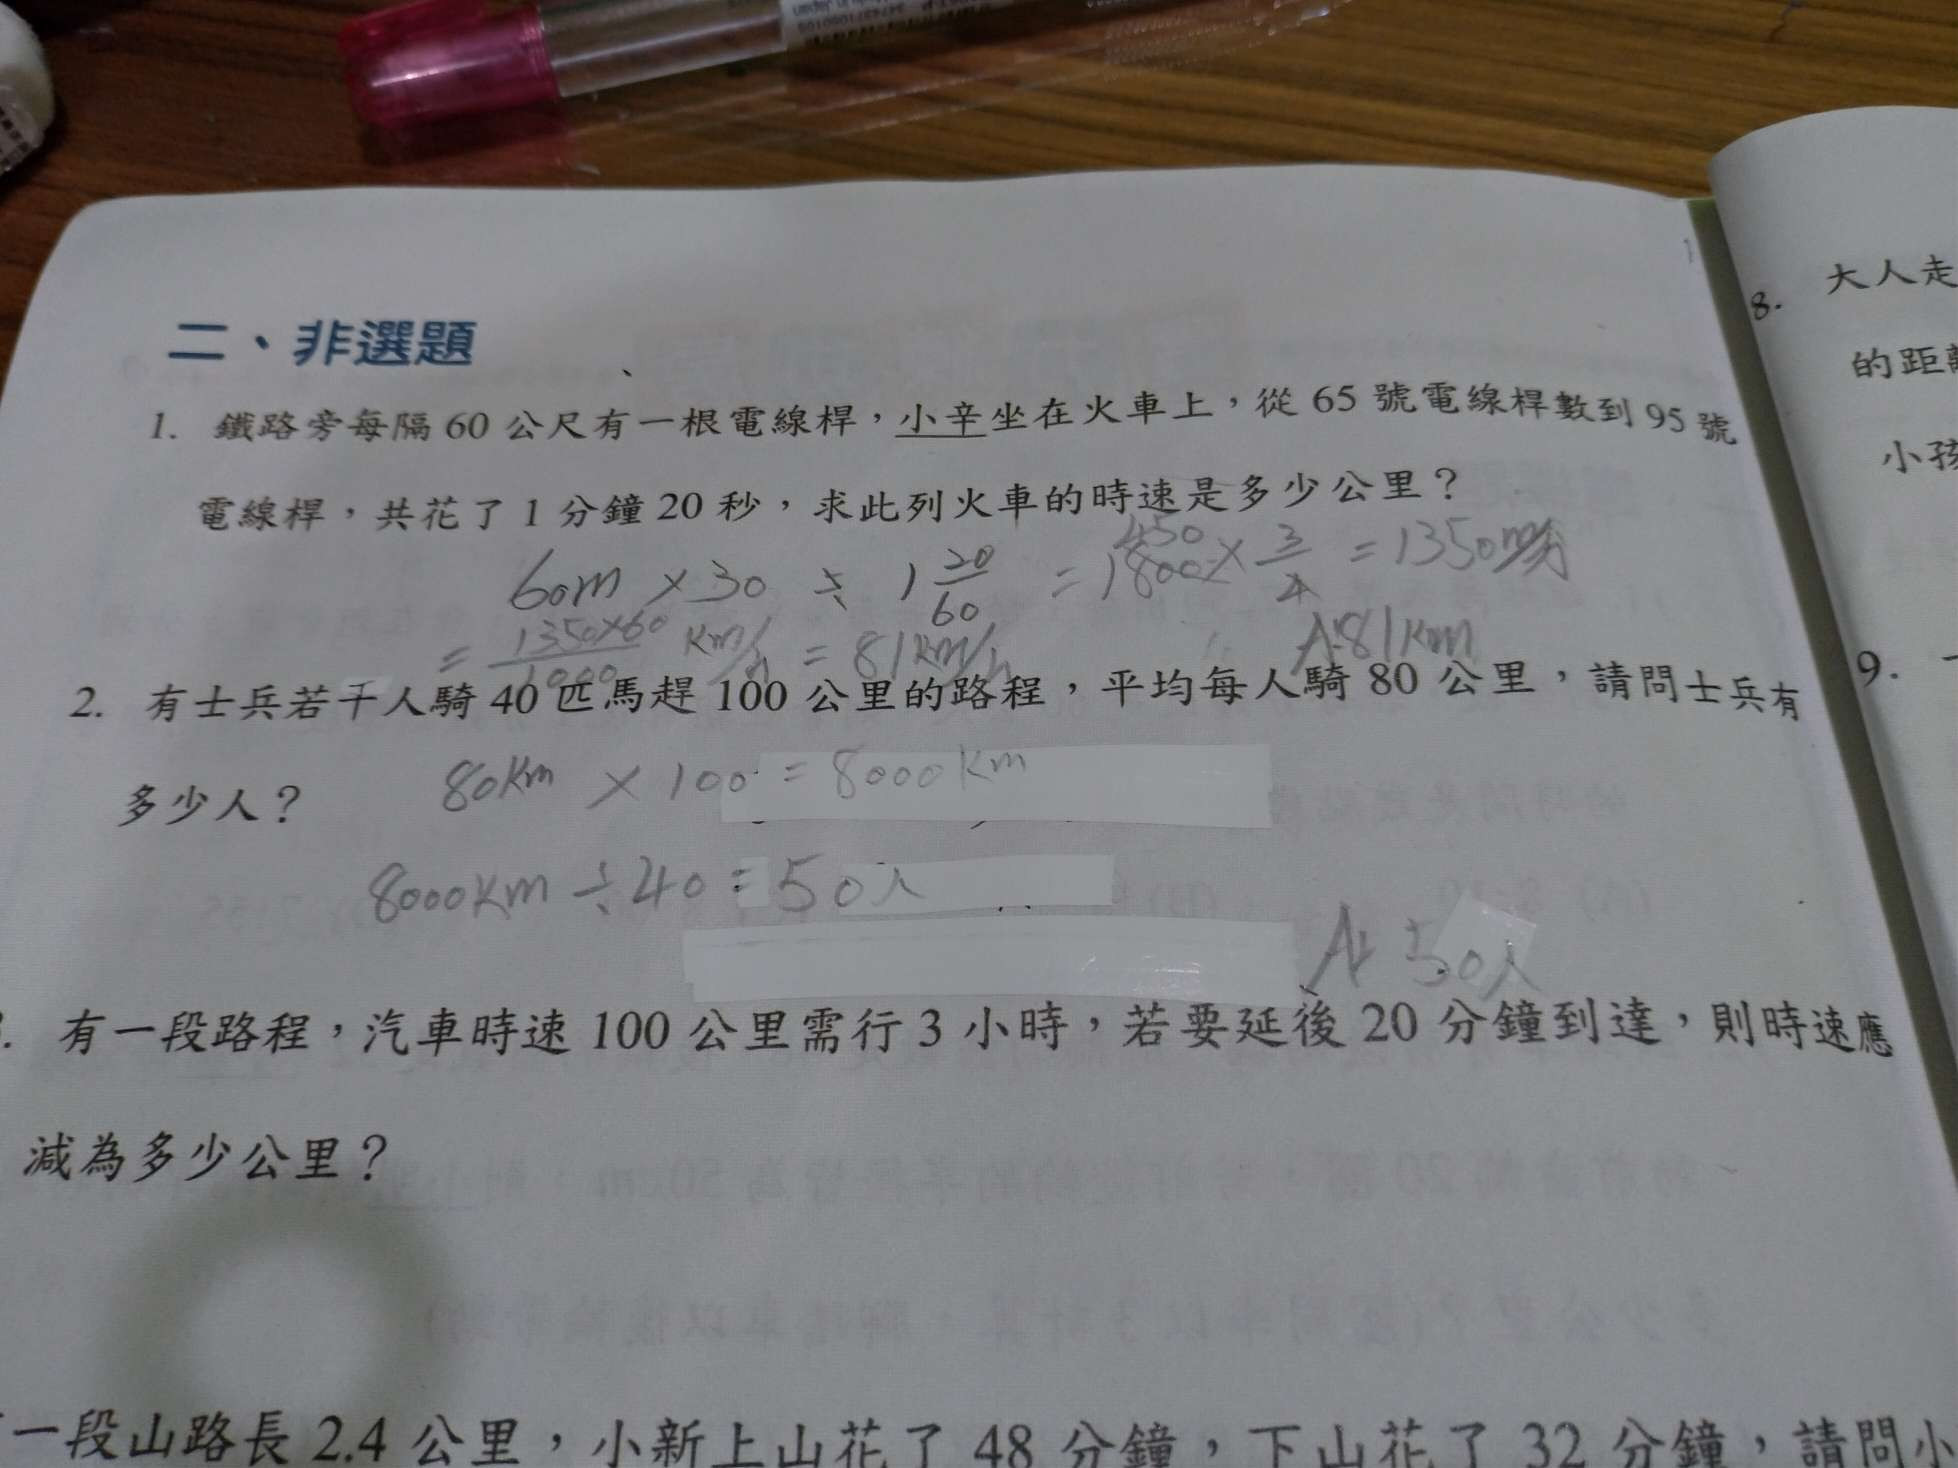 二、非選題
1. 鐵路旁每隔 60 公尺有一根電線桿，小辛坐在火車上，從 65 號電線桿數到 95 號
電線桿，共花了 1 分鐘 20 秒，求此列火車的時速是多少公里？
60m × 30 ÷ 1 20/60 = 1800 × 3/4 = 1350m/分
450
= 1350×60/1000 km/h = 81km/h A:81km
2. 有士兵若干人騎 40 匹馬趕 100 公里的路程，平均每人騎 80 公里，請問士兵有
多少人？
80km × 100 = 8000km
8000km ÷ 40 = 50人
A: 50人
有一段路程，汽車時速 100 公里需行 3 小時，若要延後 20 分鐘到達，則時速應
減為多少公里？
一段山路長 2.4 公里，小新上山花了 48 分鐘，下山花了 32 分鐘，請問小
8. 大人走
的距
小孩
9.